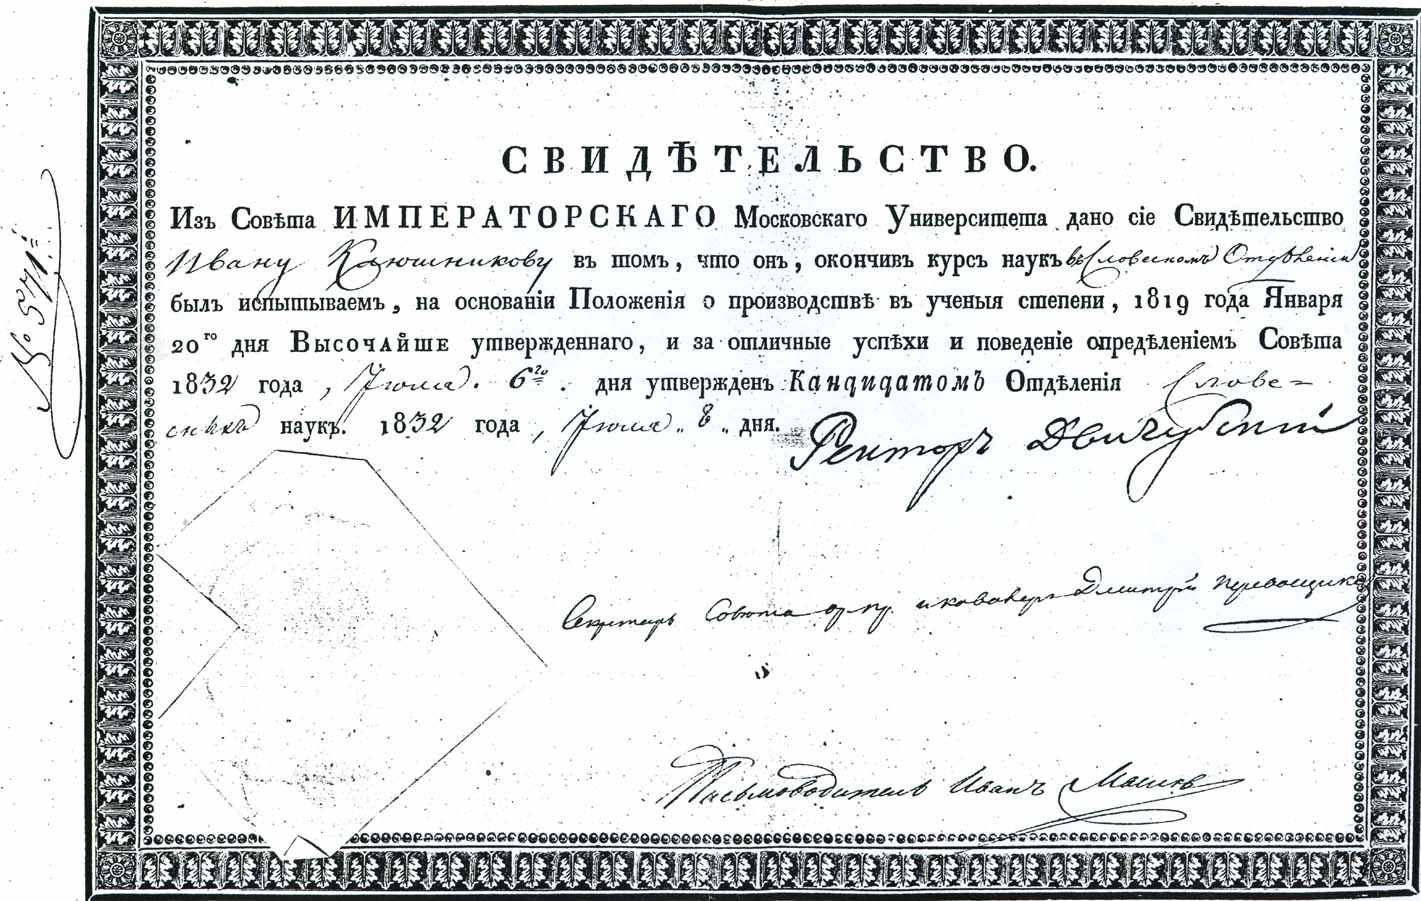 № 571.
СВИДѢТЕЛЬСТВО.
Изъ Совѣта ИМПЕРАТОРСКАГО Московскаго Университета дано сіе Свидѣтельство
Ивану Клюшникову въ томъ, что онъ, окончивъ курсъ наукъ въ Словесномъ Отдѣленіи
былъ испытываемъ, на основаніи Положенія о производствѣ въ ученыя степени, 1819 года Января
20го дня Высочайше утвержденнаго, и за отличные успѣхи и поведеніе опредѣленіемъ Совѣта
1832 года, Іюля. 6го. дня утвержденъ Кандидатомъ Отдѣленія Слове-
сныхъ наукъ. 1832 года, Іюля „ 8 „ дня.
Ректоръ Двигубскій
Секретарь Совѣта ор. пр. и кавалеръ Дмитрій Перевощиковъ
Письмоводитель Иванъ